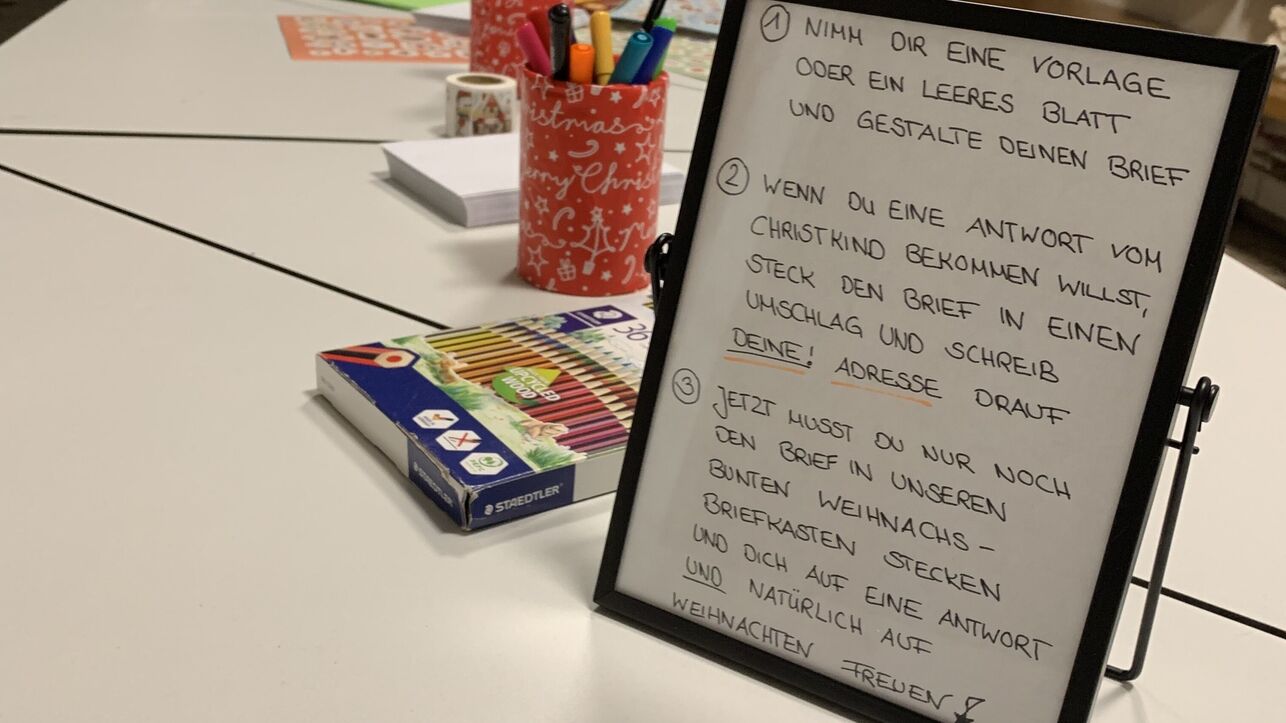 ① NIMM DIR EINE VORLAGE
ODER EIN LEERES BLATT
UND GESTALTE DEINEN BRIEF
② WENN DU EINE ANTWORT VOM
CHRISTKIND BEKOMMEN WILLST,
STECK DEN BRIEF IN EINEN
UMSCHLAG UND SCHREIB
DEINE! ADRESSE DRAUF
③ JETZT MUSST DU NUR NOCH
DEN BRIEF IN UNSEREN
BUNTEN WEIHNACHS-
BRIEFKASTEN STECKEN
UND DICH AUF EINE ANTWORT
UND NATÜRLICH AUF
WEIHNACHTEN FREUEN!
Christmas
Merry Christ
36
RECYCLED
WOOD
STAEDTLER